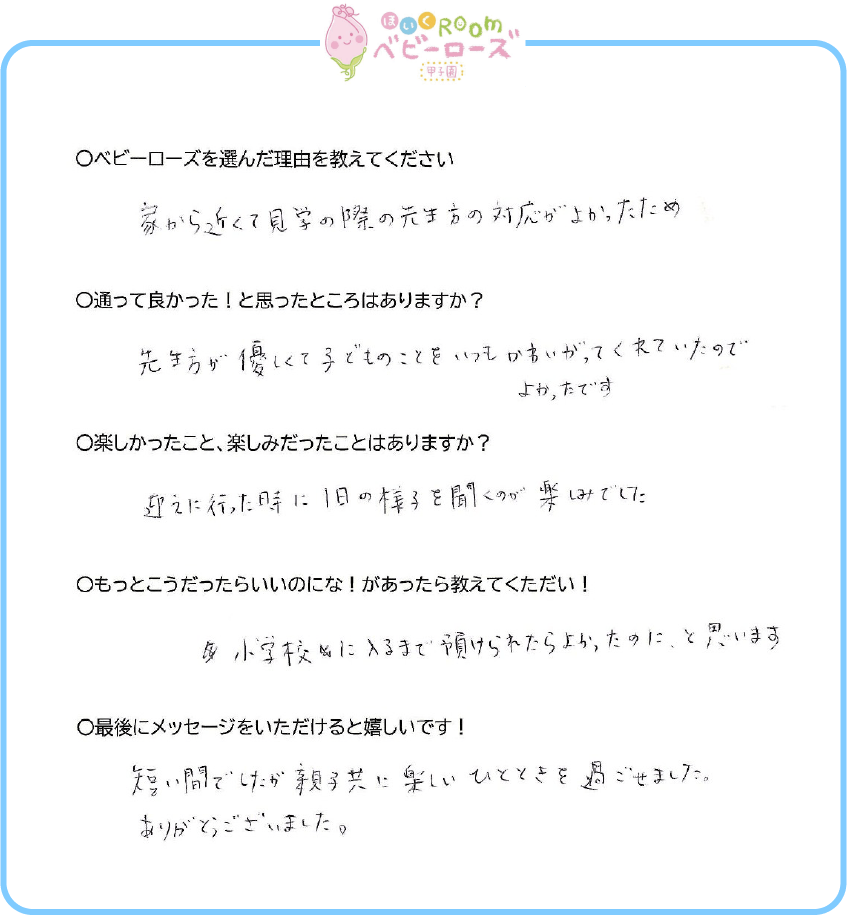 ほいくROOM
ベビーローズ
甲子園
〇ベビーローズを選んだ理由を教えてください
家から近くて見学の際の先生方の対応がよかったため
〇通って良かった！と思ったところはありますか？
先生方が優しくて子どものことをいつもかわいがってくれていたので
よかったです
〇楽しかったこと、楽しみだったことはありますか？
迎えに行った時に1日の様子を聞くのが楽しみでした
〇もっとこうだったらいいのにな！があったら教えてくただい！
小学校に入るまで預けられたらよかったのに、と思います
〇最後にメッセージをいただけると嬉しいです！
短い間でしたが親子共に楽しいひとときを過ごせました。
ありがとうございました。